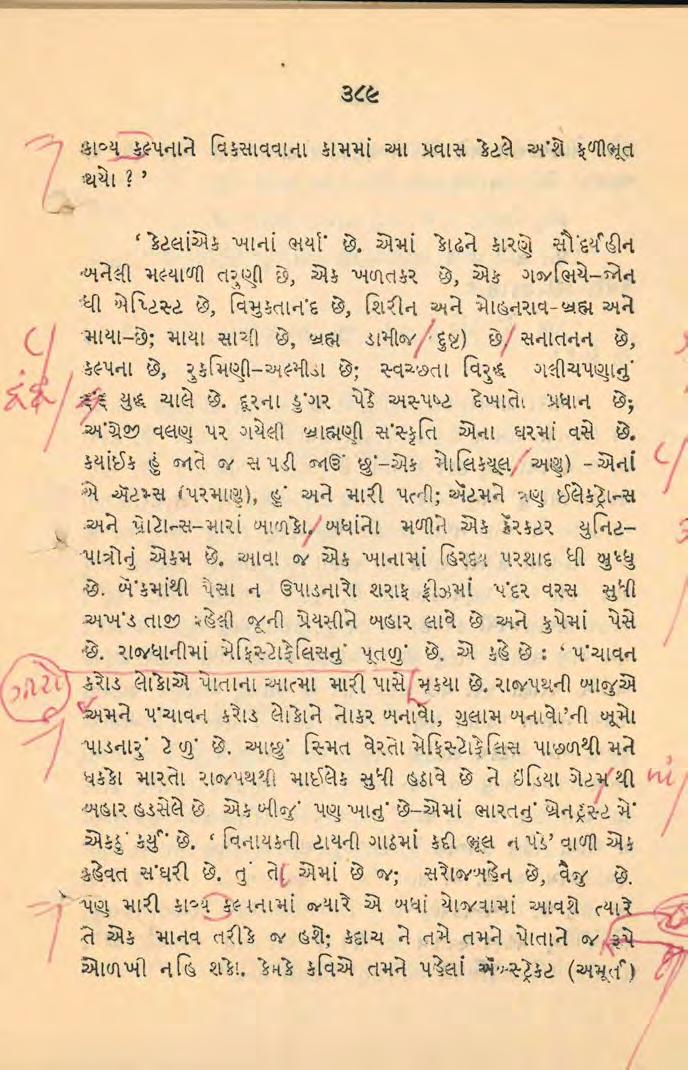 ૩૮૯
કાવ્ય કલ્પનાને વિકસાવવાના કામમાં આ પ્રવાસ કેટલે અંશે ફળીભૂત
થયો ? ’
‘ કેટલાંએક ખાનાં ભર્યાં છે. એમાં કોઢને કારણે સૌંદર્યહીન
બનેલી મલ્યાળી તરુણી છે, એક ખળતકર છે, એક ગજભિયે-જોન
ધી બેપ્ટિસ્ટ છે, વિમુકતાનંદ છે, શિરીન અને મોહનરાવ-બ્રહ્મ અને
માયા-છે; માયા સાચી છે, બ્રહ્મ ડામીજ/ દુષ્ટ) છે/ સનાતનન છે,
કલ્પના છે, રુકમિણી-અલ્મીડા છે; સ્વચ્છતા વિરુદ્ધ ગલીચપણાનું
દ્વંદ્વ
યુદ્ધ ચાલે છે. દૂરના ડુંગર પેઠે અસ્પષ્ટ દેખાતો પ્રધાન છે;
અંગ્રેજી વલણ પર ગયેલી બ્રાહ્મણી સંસ્કૃતિ એના ઘરમાં વસે છે.
કયાંઈક હું જાતે જ સપડી જાઉં છું-એક મોલિકયૂલ/ અણુ) - એનાં
બે ઍટમ્સ (પરમાણુ), હું અને મારી પત્ની; ઍટમને ત્રણ ઈલેકટ્રોન્સ
અને પ્રોટોન્સ-મારાં બાળકો./ બધાંનો મળીને એક કૅરેકટર યુનિટ-
પાત્રોનું એકમ છે. આવા જ એક ખાનામાં હિરદય પરશાદ ધી બુધ્ધુ
છે. બેંકમાંથી પૈસા ન ઉપાડનારો શરાફ ફ્રીઝમાં પંદર વરસ સુધી
અખંડ તાજી રહેલી જૂની પ્રેયસીને બહાર લાવે છે અને કુપેમાં પેસે
છે. રાજધાનીમાં મેફિસ્ટોફેલિસનું પૂતળું છે. એ કહે છે : ‘ પંચાવન
કરોડ લોકોએ પોતાના આત્મા મારી પાસે મૂકયા છે. રાજપથની બાજુએ
અમને પંચાવન કરોડ લોકોને નોકર બનાવો, ગુલામ બનાવો’ની બૂમો
પાડનારું ટોળું છે. આછું સ્મિત વેરતો મેફિસ્ટોફેલિસ પાછળથી મને
ધક્કો મારતો રાજપથથી માઈલેક સુધી હઠાવે છે ને ઇંડિયા ગેટમથી
નાં
બહાર હડસેલે છે એક બીજું પણ ખાનું છે-એમાં ભારતનું બ્રેનટ્રસ્ટ મેં
એકઠું કર્યું છે. ‘ વિનાયકની ટાયની ગાઠમાં કદી ભૂલ ન પડે’ વાળી એક
કહેવત સંઘરી છે. તું તો એમાં છે જ; સરોજબહેન છે, વૈજુ છે.
પણ મારી કાવ્ય કલ્પનામાં જ્યારે એ બધાં યોજવામાં આવશે ત્યારે
તે એક માનવ તરીકે જ હશે; કદાચ ને તમે તમને પોતાને જ રૂપે
ઓળખી નહિ શકો. કેમકે કવિએ તમને પહેલાં ઍબ્સ્ટ્રેકટ (અમૂર્ત)